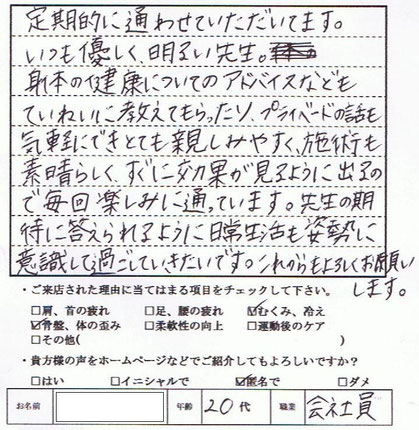 定期的に通わせていただいてます。
いつも優しく、明るい先生。
身体の健康についてのアドバイスなども
ていねいに教えてもらったり、プライベードの話も
気軽にできとても親しみやすく、施術も
素晴らしく、すぐに効果が見るように出るの
で毎回楽しみに通っています。先生の期
待に答えられるように日常生活も姿勢に
意識して過ごしていきたいです。これからもよろしくお願い
します。
・ご来店された理由に当てはまる項目をチェックして下さい。
□肩、首の疲れ □足、腰の疲れ ☑むくみ、冷え
☑骨盤、体の歪み □柔軟性の向上 □運動後のケア
□その他( )
・貴方様の声をホームページなどでご紹介してもよろしいですか?
□はい □イニシャルで ☑匿名で □ダメ
お名前 年齢 20代 職業 会社員